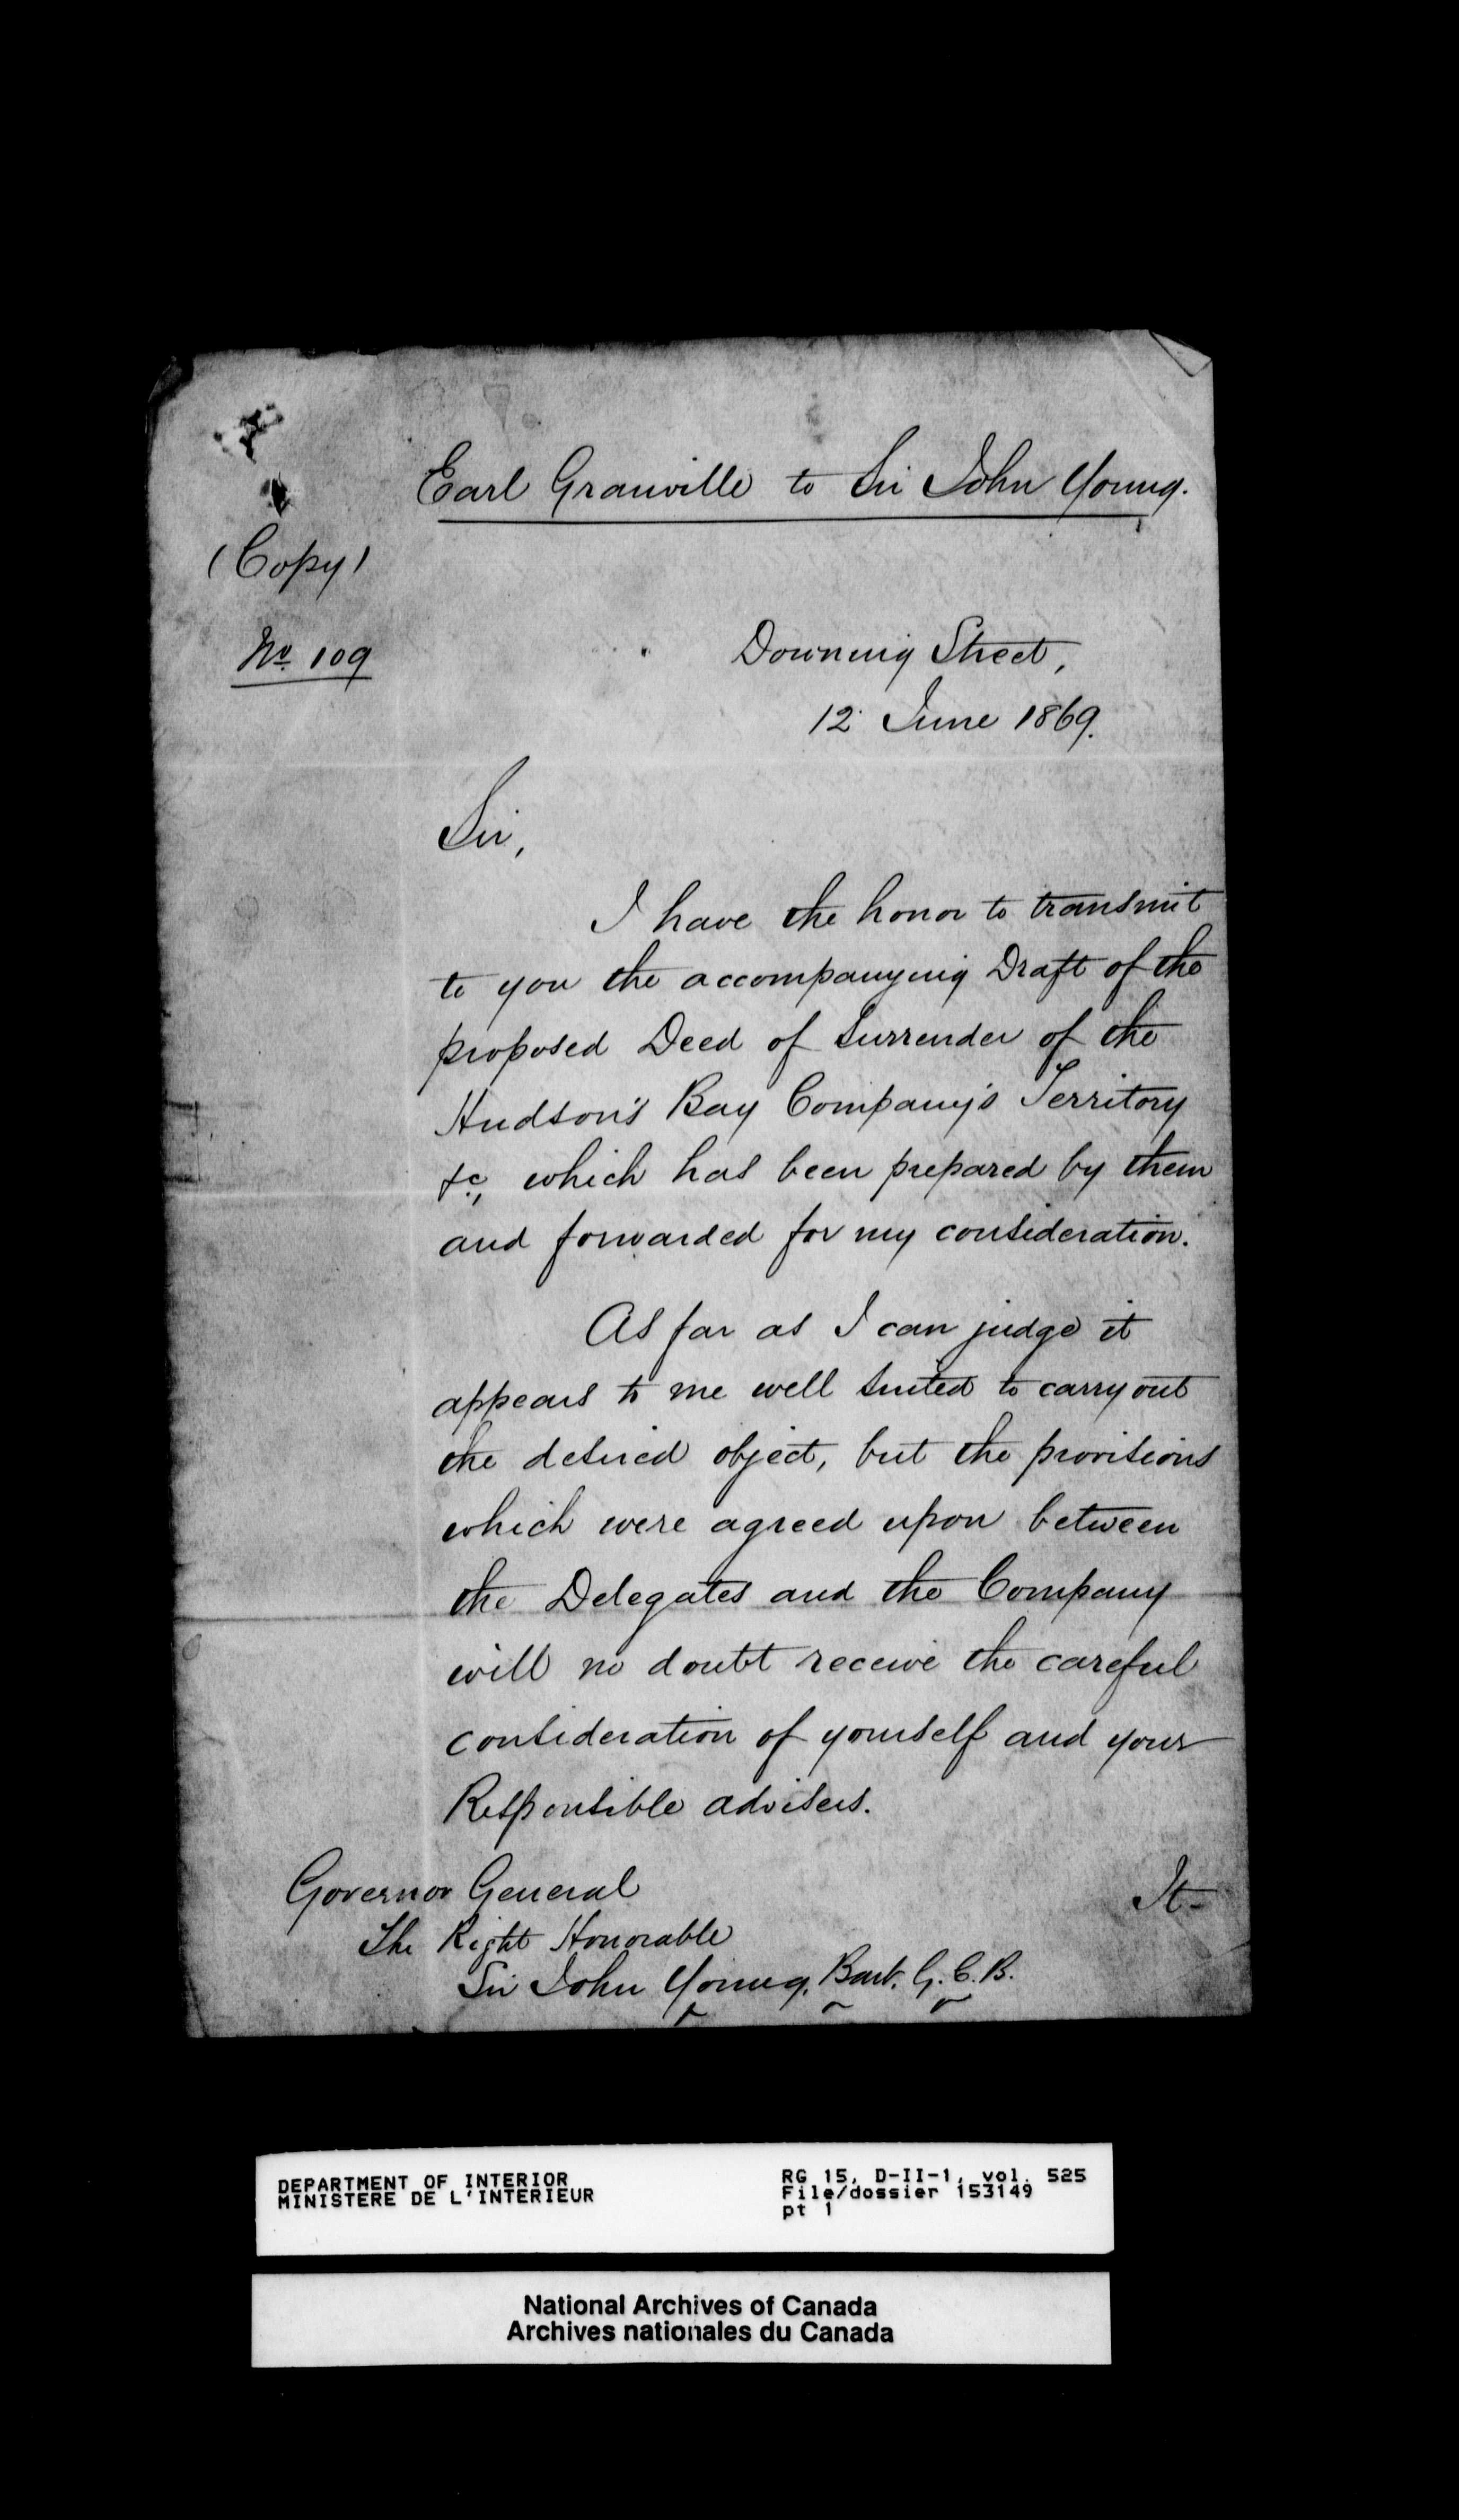 Earl Granville to Sir John Young.
(Copy)
No. 109
Downing Street,
12 June 1869.
Sir,
I have the honor to transmit
to you the accompanying Draft of the
proposed Deed of Surrender of the
Hudson's Bay Company's Territory
&c., which has been prepared by them
and forwarded for my consideration.
As far as I can judge it
appears to me well suited to carry out
the desired object, but the provisions
which were agreed upon between
the Delegates and the Company
will no doubt receive the careful
consideration of yourself and your
Responsible advisers.
It-
Governor General
The Right Honorable
Sir John Young, Bart. G.C.B.
DEPARTMENT OF INTERIOR
MINISTERE DE L'INTERIEUR
RG 15, D-II-1, vol. 525
File/dossier 153149
pt 1
National Archives of Canada
Archives nationales du Canada